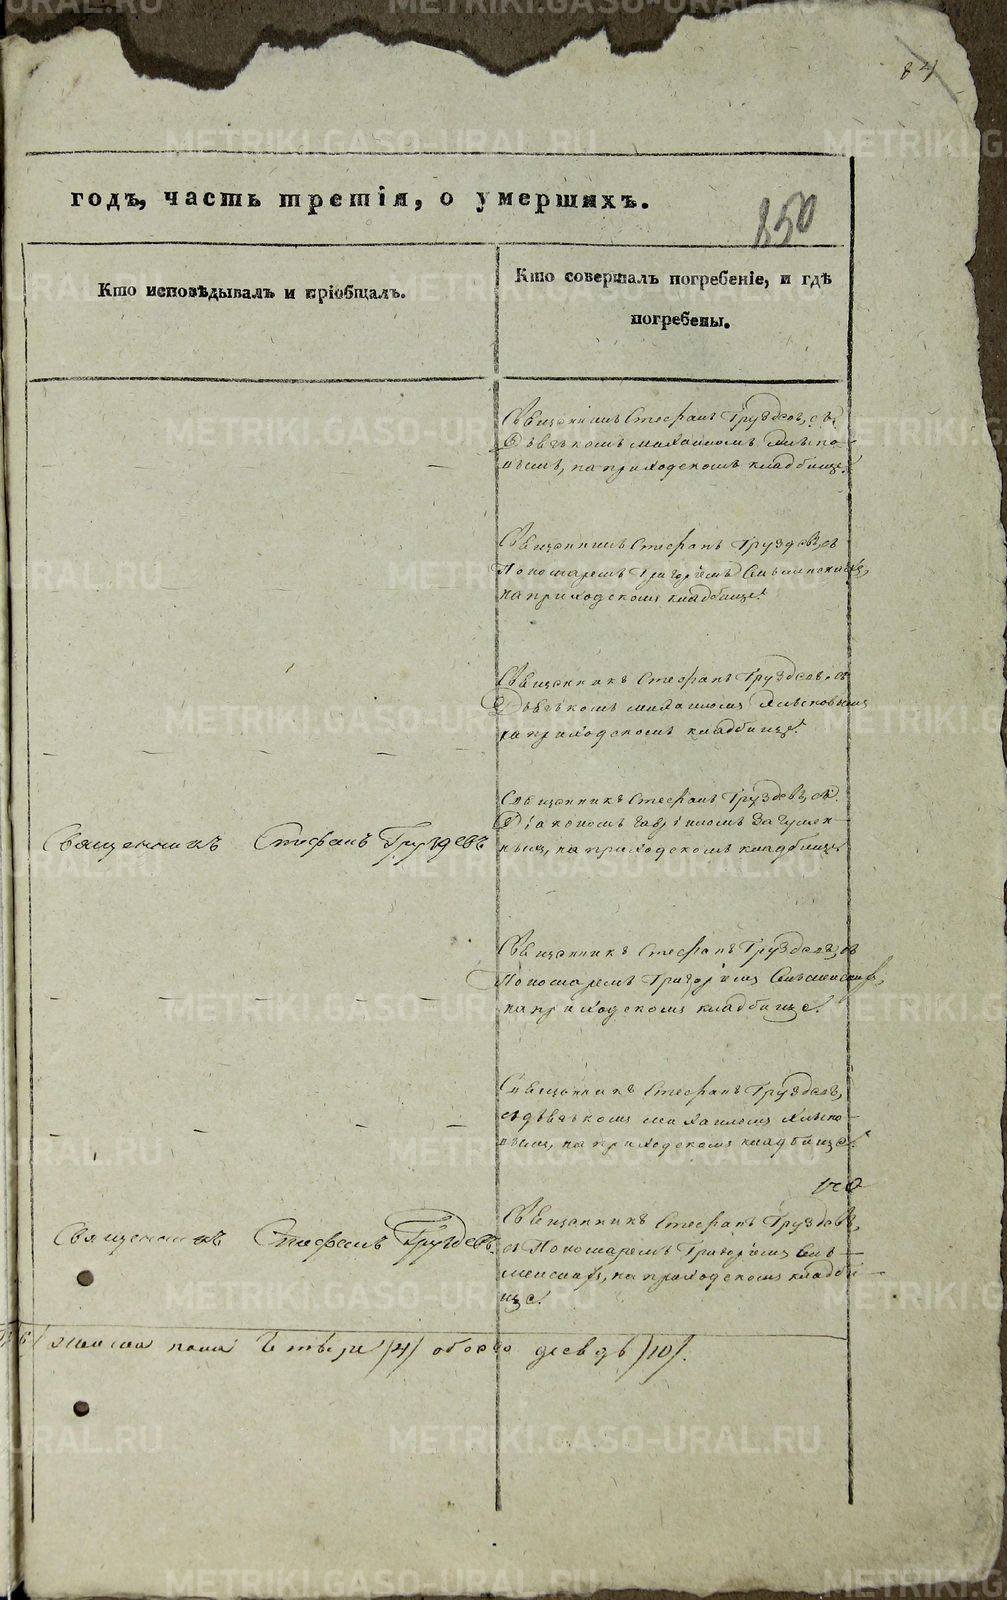 84
годъ, часть третія, о умершихъ.
850
Кто исповѣдывалъ и пріобщалъ.
Кто совершалъ погребеніе, и гдѣ
погребены.
Священникъ Стефанъ Груздевъ, съ
Дьячкомъ Михаиломъ
на приходскомъ кладбище.
Священникъ Стефанъ Груздевъ, съ
Пономаремъ Григоріемъ
на приходскомъ кладбище.
Священникъ Стефанъ Груздевъ, съ
Дьячкомъ Михаиломъ
на приходскомъ кладбище.
Священникъ Стефанъ Груздевъ, съ
Діакономъ Гавріиломъ
на приходскомъ кладбище
Священникъ Стефанъ Груздевъ
Священникъ Стефанъ Груздевъ, съ
Пономаремъ Григоріемъ
на приходскомъ кладбище.
Священникъ Стефанъ Груздевъ,
съ дьячкомъ Михаиломъ
на приходскомъ кладбище.
Священникъ Стефанъ Груздевъ,
съ Пономаремъ Григоріемъ
на приходскомъ кладби
ще.
Священникъ Стефанъ Груздевъ.
/4/ обоего /10/.
METRIKI.GASO-URAL.RU